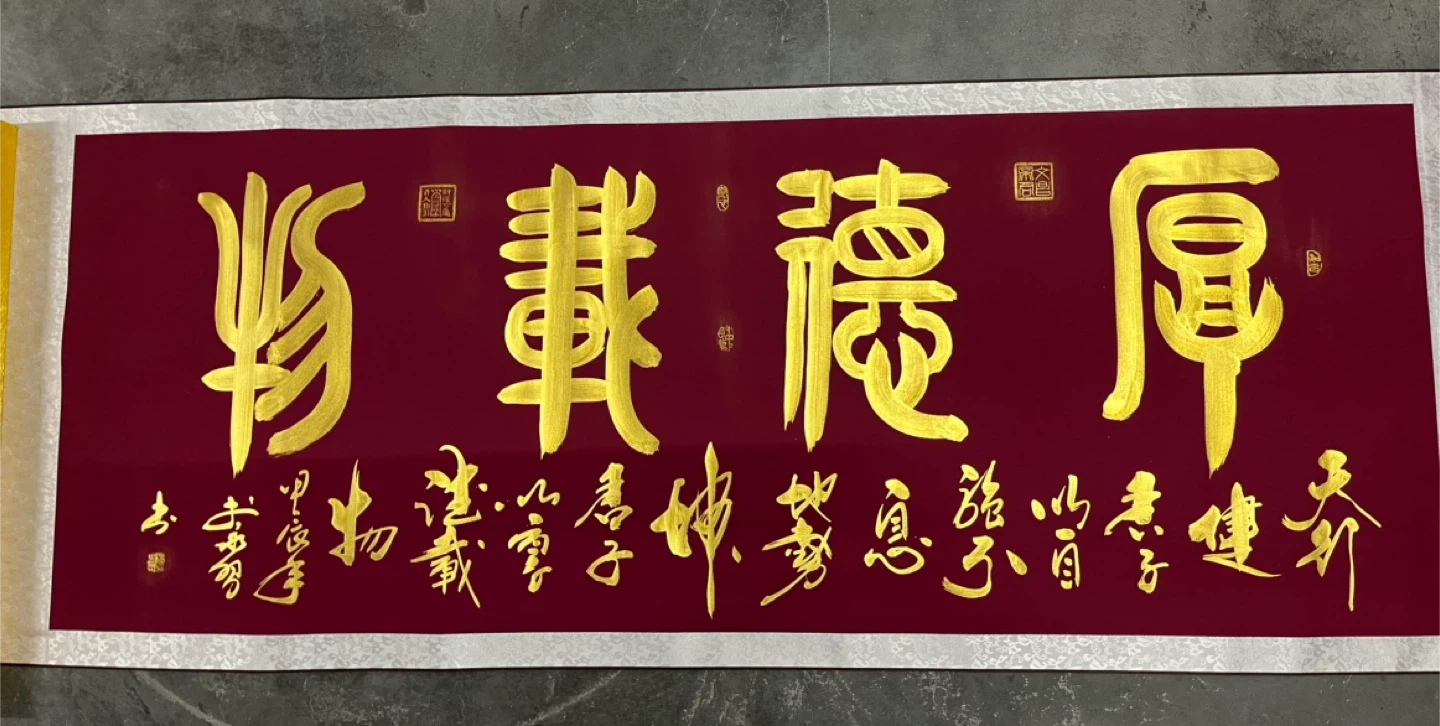 厚德載物
天行
健
君子
以自
強不
息
地勢
坤
君子
以厚
德載
物
甲辰年
書
文昌
帝君